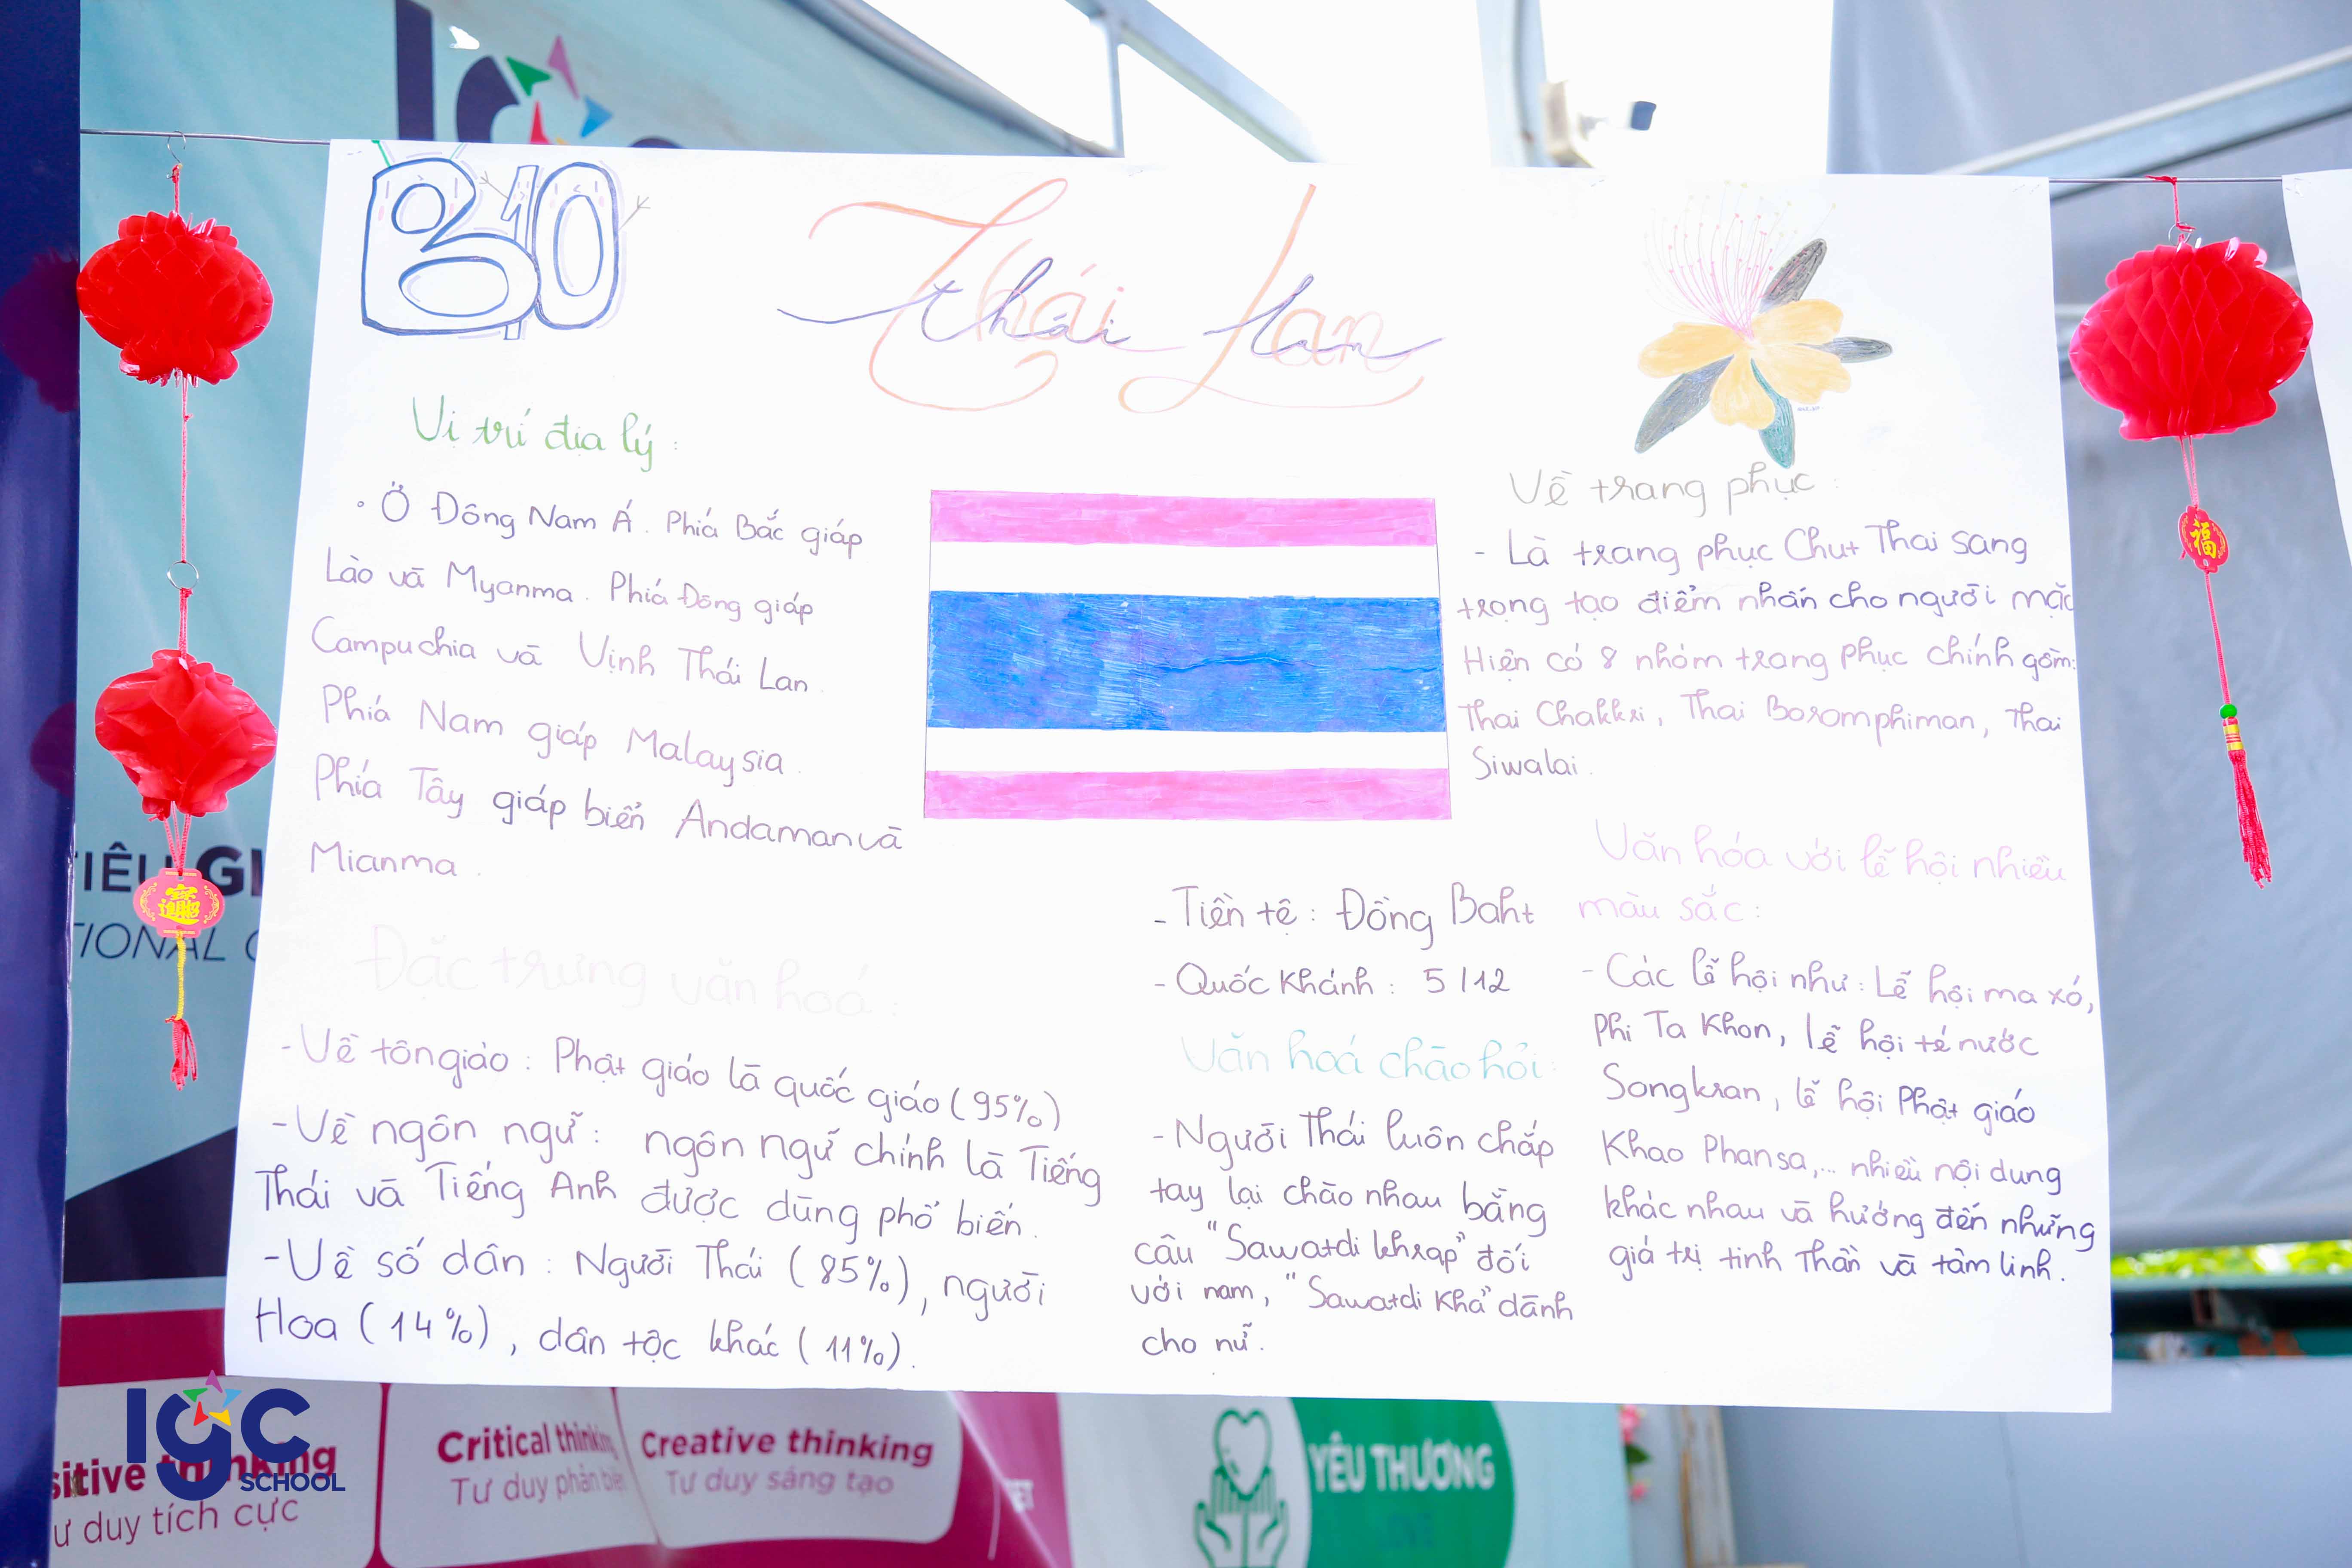 B10
Thái Lan
thái lan
Vị trí địa lý :
• Ở Đông Nam Á. Phiá Bắc giáp
Lào và Myanma. Phiá Đông giáp
Campuchia và Vịnh Thái Lan.
Phiá Nam giáp Malaysia.
Phiá Tây giáp biển Andaman và
Mianma.
Đặc trưng văn hoá :
- Về tôn giáo : Phật giáo là quốc giáo (95%)
- Về ngôn ngữ : ngôn ngữ chính là Tiếng
Thái và Tiếng Anh được dùng phổ biến.
- Về số dân : Người Thái (85%), người
Hoa (14%), dân tộc khác (11%).
- Tiền tệ : Đồng Baht
- Quốc Khánh : 5/12
Văn hoá chào hỏi :
- Người Thái luôn chắp
tay lại chào nhau bằng
câu "Sawatdi khrap" đối
với nam, "Sawatdi Kha" dành
cho nữ.
Về trang phục :
- Là trang phục Chut Thai sang
trọng tạo điểm nhấn cho người mặc
Hiện có 8 nhóm trang phục chính gồm:
Thai Chakkri, Thai Boromphiman, Thai
Siwalai.
Văn hóa với lễ hội nhiều
màu sắc :
- Các lễ hội như : Lễ hội ma xó,
Phi Ta Khon, lễ hội té nước
Songkran, lễ hội Phật giáo
Khao Phansa,... nhiều nội dung
khác nhau và hướng đến những
giá trị tinh thần và tâm linh.
福
TIONAL
IGC
SCHOOL
sitive thinking
ư duy tích cực
Critical thinking
Tư duy phản biện
Creative thinking
Tư duy sáng tạo
YÊU THƯƠNG